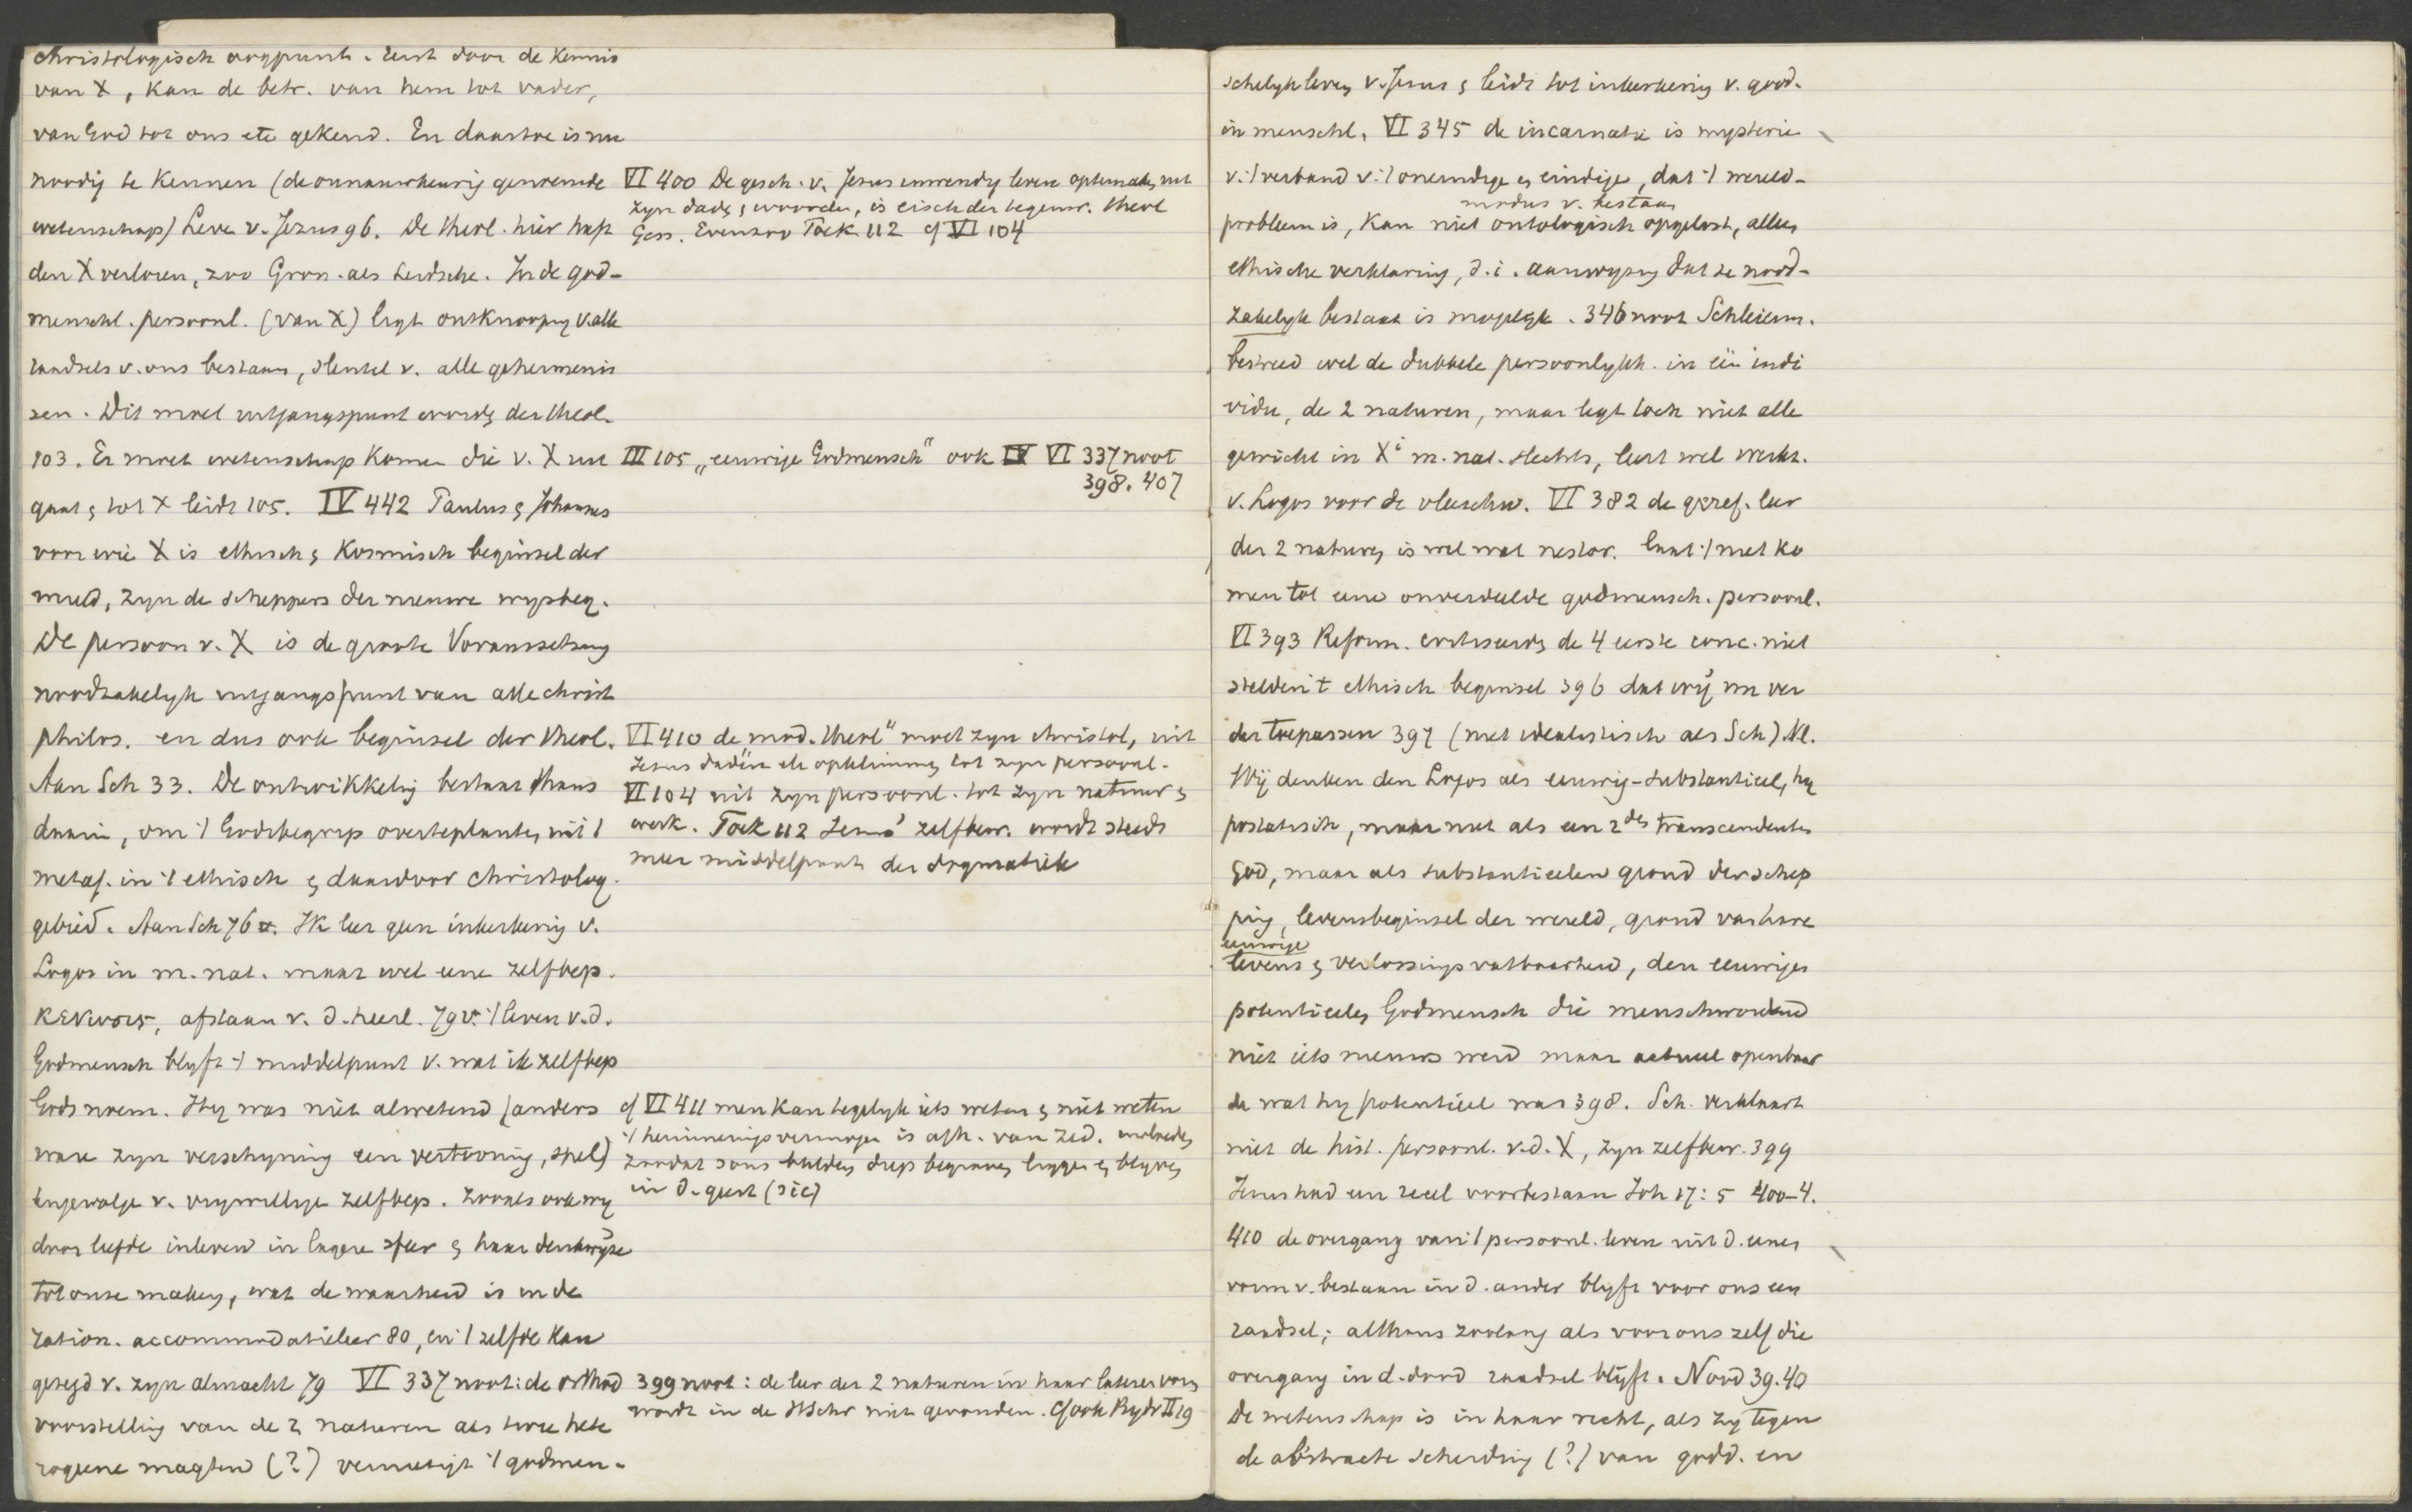 christologisch oogpunt. Eerst door de kennis
van X, kan de betr. van hem tot vader,
van God tot ons etc gekend. En daartoe is nu
noodig te kennen (de onnauwkeurig genoemde
wetenschap) Leven v. Jezus 96. De theol. hier heeft
den X verloren, zoo Gron. als Leidsche. In de god-
menschl. persoonl. (van X) ligt ontknooping v. alle
raadsels v. ons bestaan, sleutel v. alle geheimenis
sen. Dit moet uitgangspunt worden der theol.
103. Er moet wetenschap komen die v. X uit
gaat & tot X leidt 105. IV 442 Paulus & Johannes
voor wie X is ethisch & kosmisch beginsel der
wereld, zyn de scheppers der nieuwe wysbeg.
De persoon v. X is de groote Voraussetzung
noodzakelyk uitgangspunt van alle christ
philos. en dus ook beginsel der theol.
Aan Sch 33. De ontwikkeling bestaat thans
daarin, om 't Godsbegrip overteplanten uit 't
metaf. in 't ethisch & daardoor christolog.
gebied. Aan Sch 76. Ik leer geen inkerkering v.
Logos in m. nat. maar wel eene zelfbep.
κενωσις, afstaan v. d. heerl. 79 v. 't leven v. d.
Godmensch blyft 't middelpunt v. wat ik zelfbep
Gods noem. Hy was niet alwetend (anders
ware zyn verschyning een vertooning, spel)
tengevolge v. vrywillige zelfbep. zooals ook wy
door liefde inleven in lagere sfeer & haar denkwijze
tot onze maken, wat de waarheid is in de
ration. accommodatieleer 80, en 't zelfde kan
gezegd v. zyn almacht 79 VI 337 noot: de orthod
voorstelling van de 2 naturen als twee hete
rogene magten (?) vernietigt 't godmen-
VI 400 De gesch. v. Jesus inwendig leven optemaken uit
zyn daden & woorden, is eisch der tegenw. theol
Gess. Evenzoo Toek 112 cf VI 104
III 105 „eeuwige Godmensch" ook VI 337 noot
398. 407
VI 410 de „mod. theol" moet zyn christol, uit
Jesus daden etc opklimmen tot zyn persoonl.
VI 104 uit zyn persoonl. tot zyn natuur &
werk. Toek 112 Jesus' zelfbew. wordt steeds
meer middelpunt der dogmatiek
cf VI 411 men kan tegelyk iets weten & niet weten
't herinneringsvermogen is afh. van zed.
zoodat soms beelden diep begraven liggen & blyven
in d. geest (sic)
399 noot: de leer der 2 naturen in haar lateren vorm
wordt in de HSchr niet gevonden. Cf ook Bydr II 19
schelyk leven v. Jesus & leidt tot inkerkering v. godd.
in menschl. VI 345 de incarnatie is mysterie
v. 't verband v. 't oneindige & eindige, dat 't wereld-
modus v. bestaan
probleem is, kan niet ontologisch opgelost, alleen
ethische verklaring, d.i. aanwyzing dat ze nood-
zakelyk bestaat is mogelyk. 346 noot Schleierm.
bestreed wel de dubbele persoonlykh. in één indi
vidu, de 2 naturen, maar legt toch niet alle
gewicht in Xi m. nat. slechts, leert wel werkz.
v. Logos voor de vleeschw. VI 382 de geref. leer
der 2 naturen is wel wat nestor. laat 't niet ko
men tot eene onverdeelde godmensch. persoonl.
VI 393 Reform. critiseerden de 4 eerste conc. niet
stelden 't ethisch beginsel 396 dat wij nu ver
der toepassen 397 (niet idealistisch als Sch) Nl.
Wij denken den Logos als eeuwig-substantieel, hy
postatisch, maar niet als een 2den transcendenten
God, maar als substantieelen grond der schep
ping, levensbeginsel der wereld, grond van hare
eeuwige
levens & verlossingsvatbaarheid, den eeuwigen
potentieelen Godmensch die menschwordend
niet iets nieuws werd maar actueel openbaar
de wat hy potentieel was 398. Sch. verklaart
niet de hist. persoonl. v. d. X, zyn zelfbew. 399
Jesus had een reeel voorbestaan Joh 17:5 400-4.
410 de overgang van 't persoonl. leven uit d. eenen
vorm v. bestaan in d. ander blyft voor ons een
raadsel; althans zoolang als voor ons zelf die
overgang in d. dood raadsel blijft. Nood 39.40
De wetenschap is in haar recht, als zy tegen
de abstracte scheiding (?) van godd. en